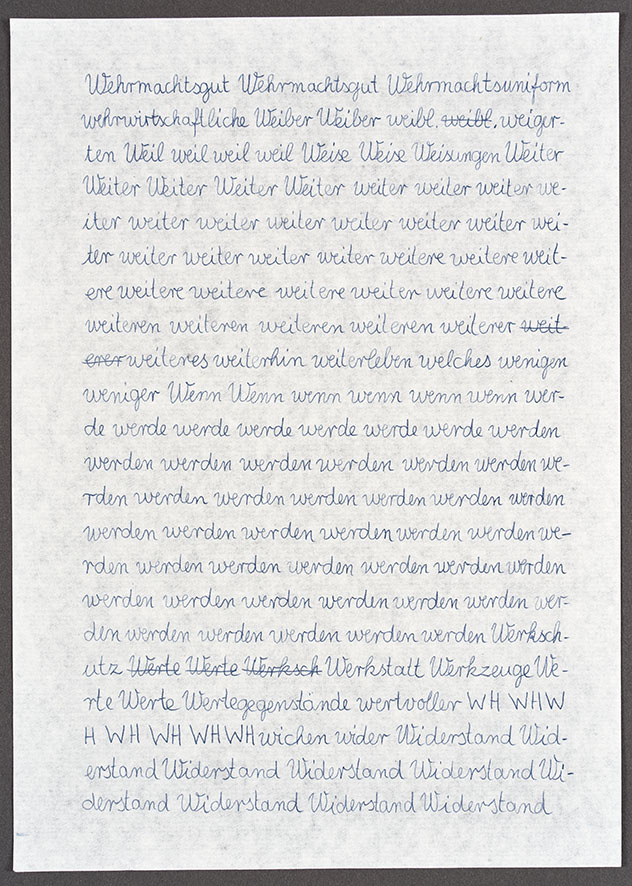 Wehrmachtsgut Wehrmachtsgut Wehrmachtsuniform
wehrwirtschaftliche Weiber Weiber weibl. weibl. weiger-
ten Weil weil weil weil Weise Weise Weisungen Weiter
Weiter Weiter Weiter Weiter weiter weiter weiter we-
iter weiter weiter weiter weiter weiter weiter wei-
ter weiter weiter weiter weiter weitere weitere weit-
ere weitere weitere weitere weiter weitere weitere
weiteren weiteren weiteren weiteren weiterer weit-
erer weiteres weiterhin weiterleben welches wenigen
weniger Wenn Wenn wenn wenn wenn wenn wer-
de werde werde werde werde werde werde werden
werden werden werden werden werden werden we-
rden werden werden werden werden werden werden
werden werden werden werden werden werden we-
rden werden werden werden werden werden werden
werden werden werden werden werden werden wer-
den werden werden werden werden werden Werksch-
utz Werte Werte Werksch Werkstatt Werkzeuge We-
rte Werte Wertegegenstände wertvoller WH WHW
H WH WH WHWH wichen wider Widerstand Wid-
erstand Widerstand Widerstand Widerstand Wi-
derstand Widerstand Widerstand Widerstand